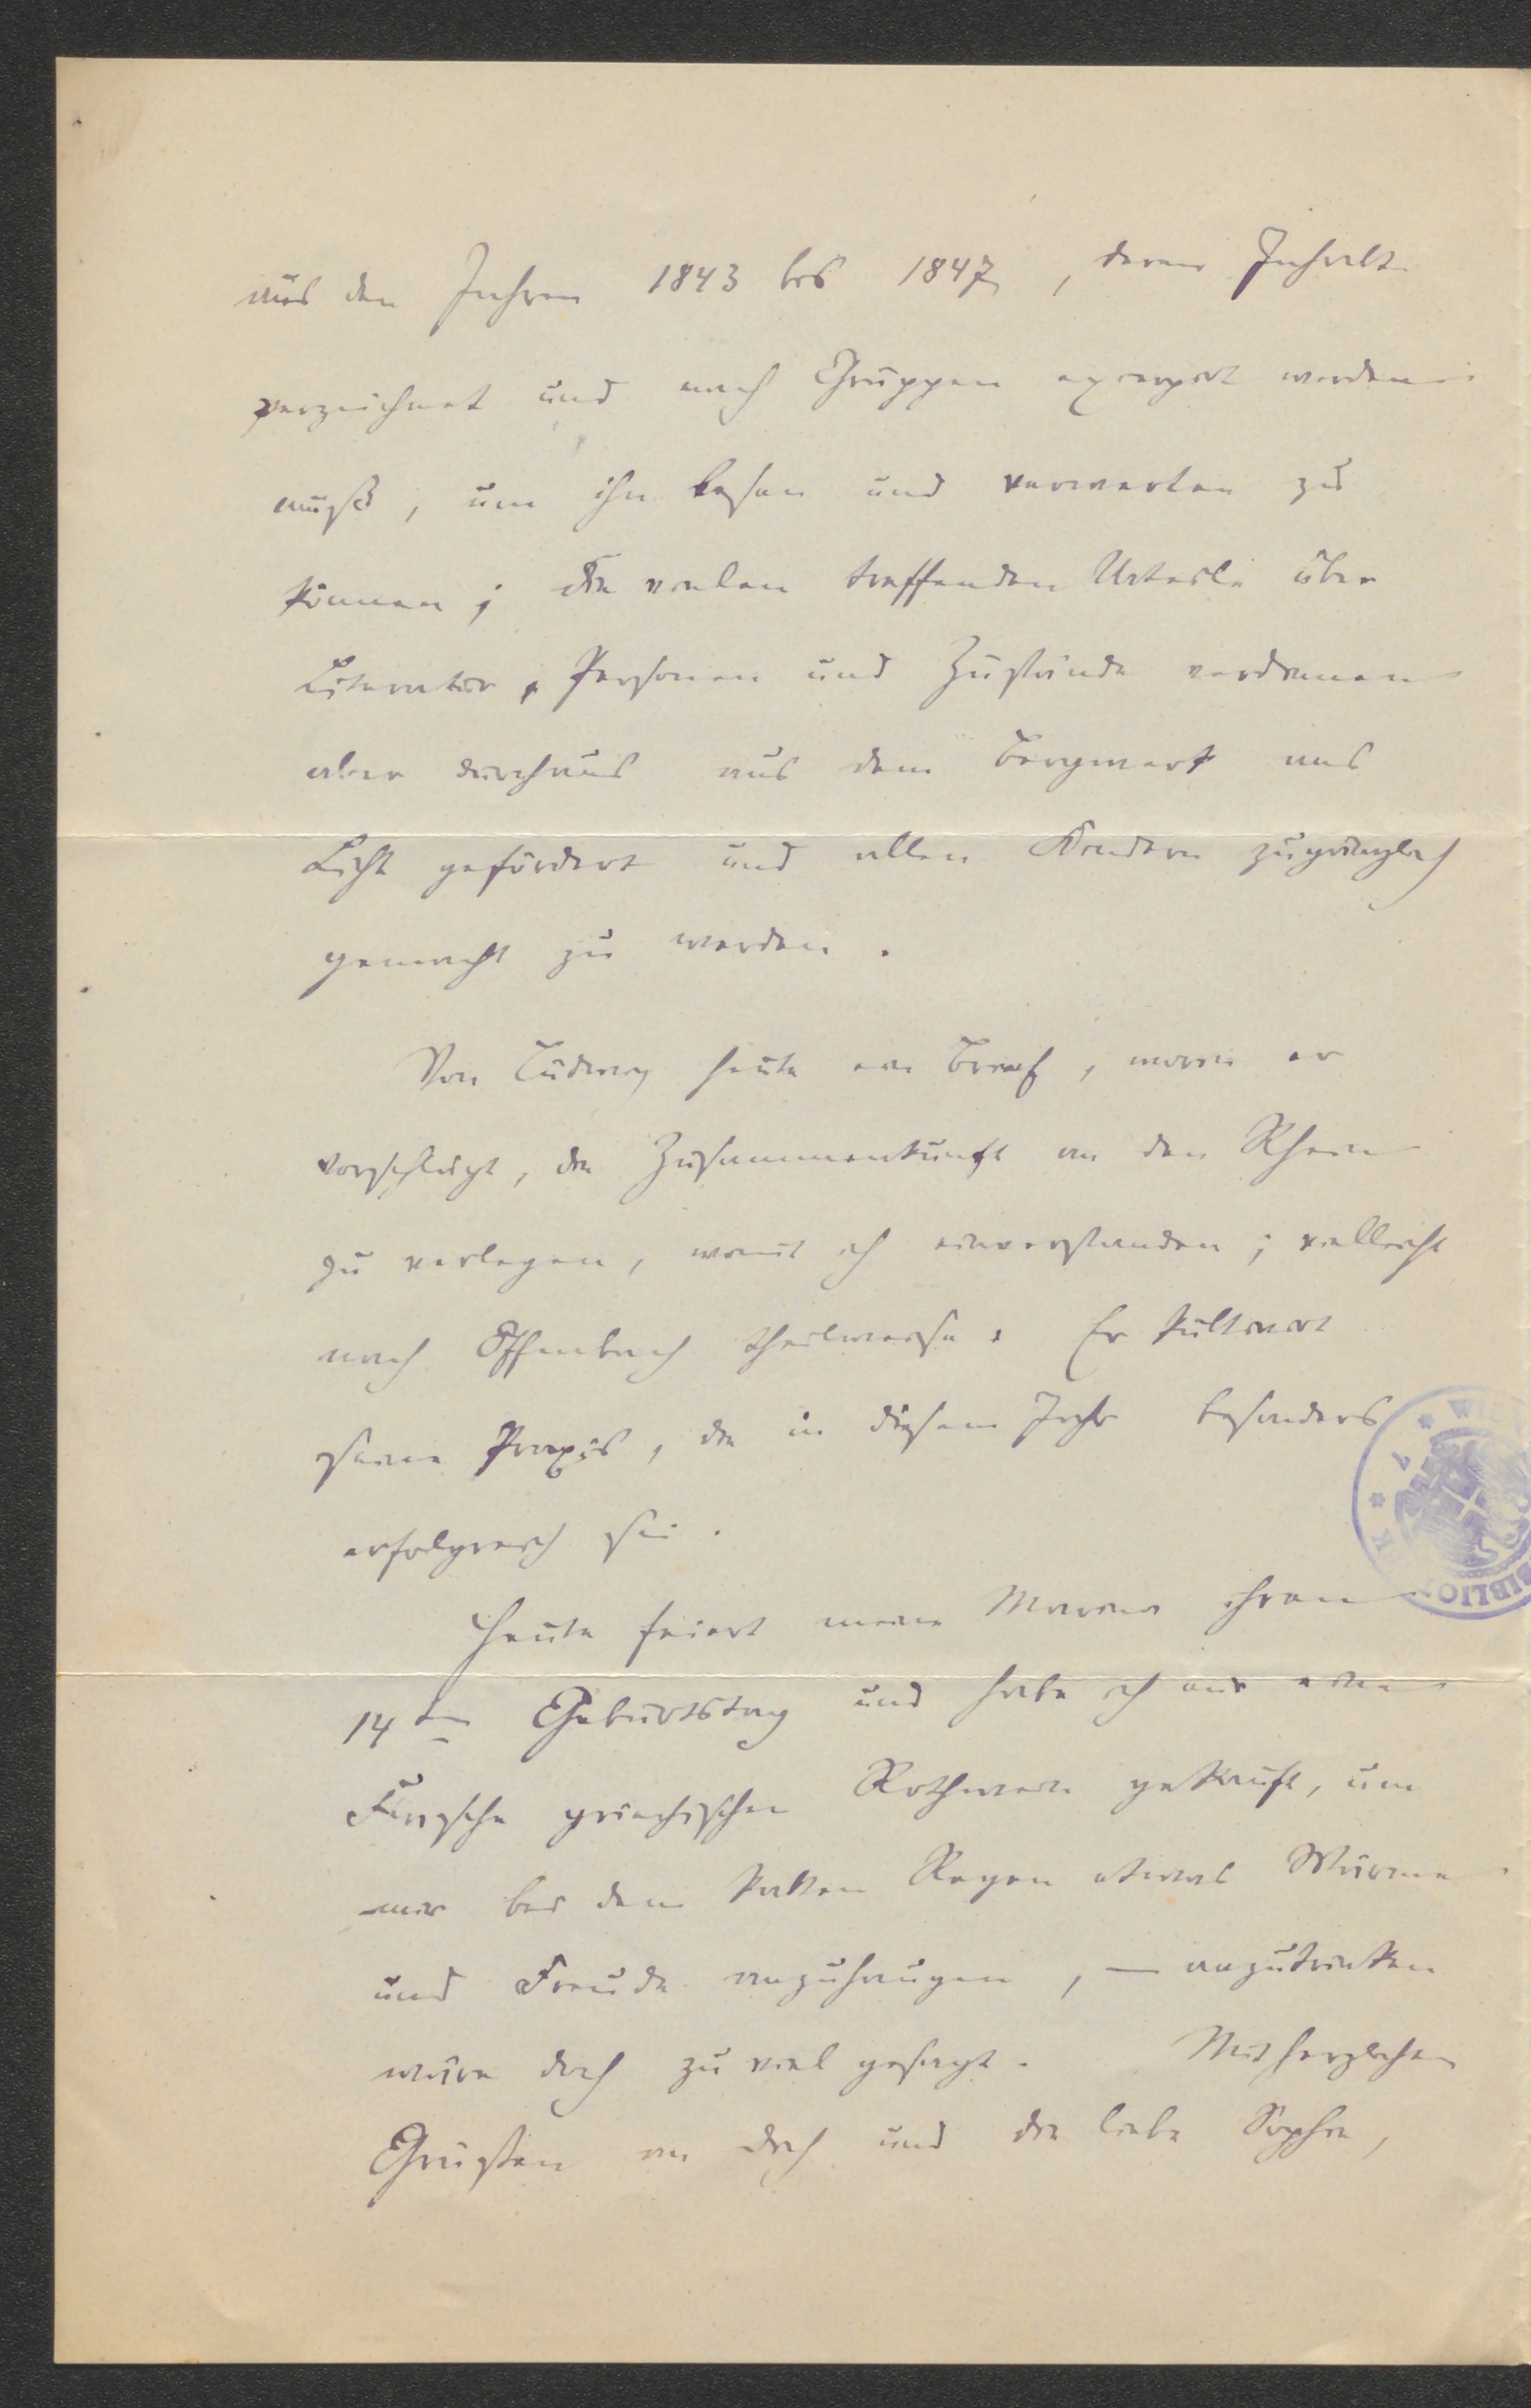 aus den Jahren 1843 bis 1847, deren Inhalt
verzeichnet und nach Gruppen excerpirt werden
muß, um ihn lesen und verwerten zu
können; die vielen treffenden Urteile über
Literatur, Personen und Zustände verdienen
aber durchaus aus dem Bergwerk ans
Licht gefördert und allen Kindern zugänglich
gemacht zu werden.
Von Ludwig heute ein Brief, worin er
vorschlägt, die Zusammenkunft an den Rhein
zu verlegen, womit ich einverstanden; vielleicht
nach Offenbach theilweise. Er kultivirt
seine Praxis, die in diesem Jahr besonders
erfolgreich sei.
Heute feiert meine ihren
14ten Geburtstag und habe ich mir eine
Flasche griechischen Rothwein gekauft, um
mir bei dem kalten Regen etwas Wärme
und Freude anzusaugen, — anzutrinken
wäre doch zu viel gesagt. Mit herzlichen
Grüßen an dich und die liebe Sophie,
WIE
BIBLIO